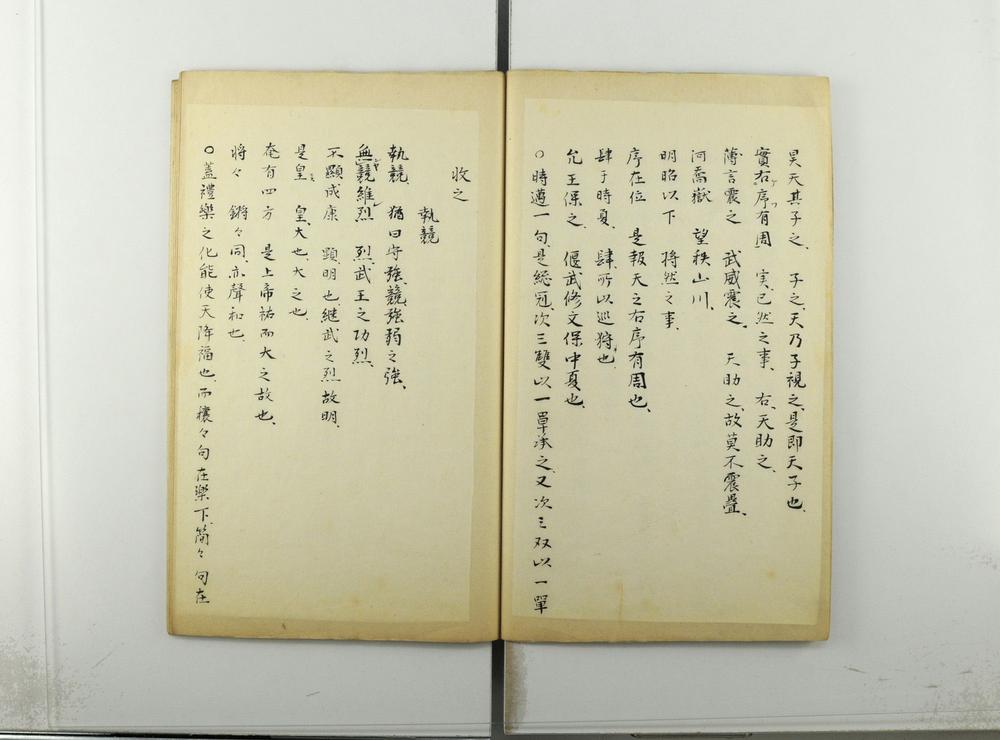 昊天其子之、 子之、天乃子視之、是即天子也、
實右序有周 実、已然之事、右、天助之、
薄言震之 武威震之、 天助之、故莫不震疊、
河喬嶽 望秩山川、
明昭以下 将然之事、
序在位 是報天之右序有周也、
肆于時夏、 肆、所以巡狩也、
允王保之、 偃武修文保中夏也、
○時邁一句、是総冠、次三雙以一單承之、又次三双以一單
收之
執競
執競、 猶曰守強、競、強弱之強、
無競維烈 烈、武王之功烈、
不顯成康 顕明也、継武之烈故明、
是皇 皇、大也、大之也、
奄有四方 是上帝祐而大之故也、
将々 鏘々同、亦聲和也、
○蓋禮樂之化能使天降福也、而穰々句在樂下、簡々句在